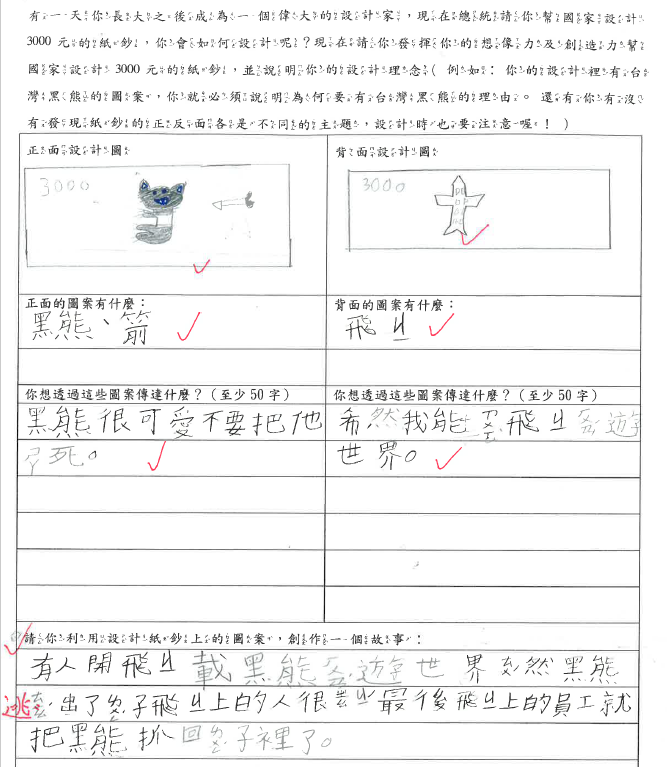 有一天你長大之後成為一個偉大的設計家，現在總統請你幫國家設計
3000 元的紙鈔，你會如何設計呢？現在請你發揮你的想像力及創造力幫
國家設計 3000 元的紙鈔，並說明你的設計理念(例如：你的設計裡有台
灣黑熊的圖案，你就必須說明為何要有台灣黑熊的理由。還有你有沒
有發現紙鈔的正反面各是不同的主題，設計時也要注意喔！)
正面設計圖
背面設計圖
3000
3000
正面的圖案有什麼：
背面的圖案有什麼：
黑熊、箭
飛ㄐㄧ
你想透過這些圖案傳達什麼？(至少 50 字)
你想透過這些圖案傳達什麼？(至少 50 字)
黑熊很可愛不要把他
希然我能 飛ㄐㄧ 遊
死。
世界。
請你利用設計紙鈔上的圖案，創作一個故事：
有人開飛ㄐㄧ載黑熊 遊世界 然黑熊
逃 出了 子飛ㄐㄧ上的人很 最後飛ㄐㄧ上的員工就
把黑熊抓回 子裡了。